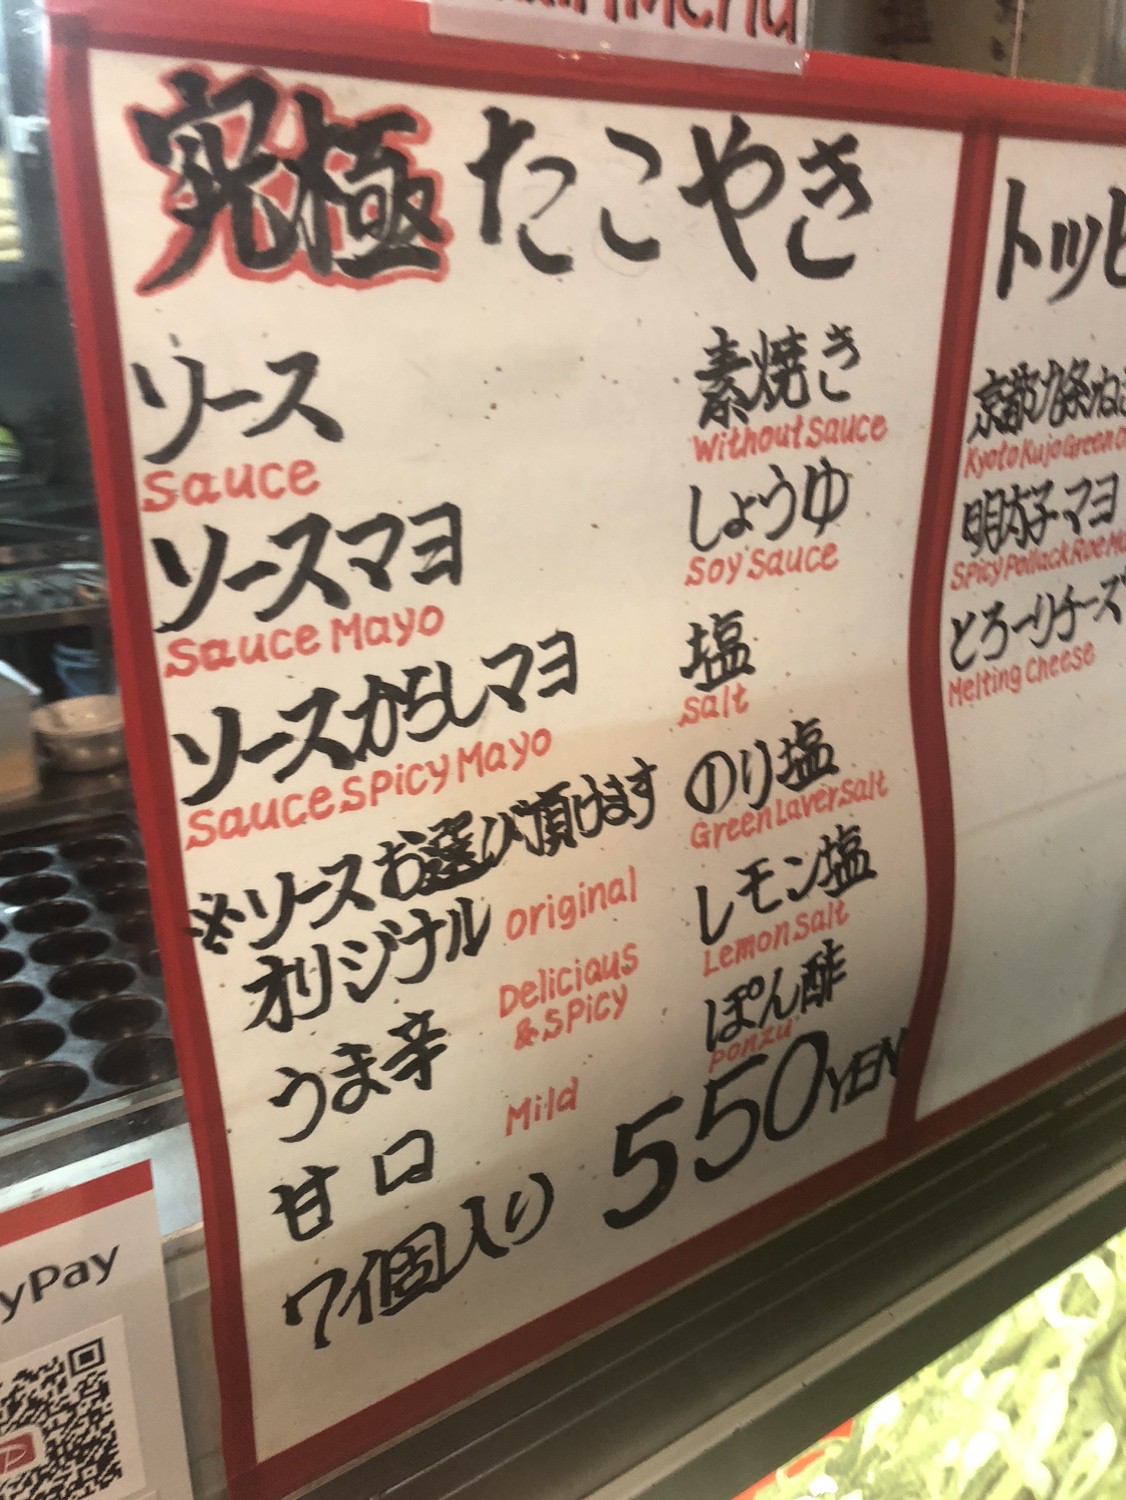 Menu
究極たこやき
ソース
Sauce
ソースマヨ
Sauce Mayo
ソースからしマヨ
Sauce Spicy Mayo
※ソースお選び頂けます
オリジナル original
うま辛 Delicious
& Spicy
甘口 Mild
7個入り 550YEN
素焼き
Without Sauce
しょうゆ
Soy Sauce
塩
Salt
のり塩
Green Laver Salt
レモン塩
Lemon Salt
ぽん酢
Ponzu
トッピ
京都九条ねぎ
Kyoto Kujo Green
明太子マヨ
Spicy Pollack Roe
とろーりチーズ
Melting Cheese
yPay